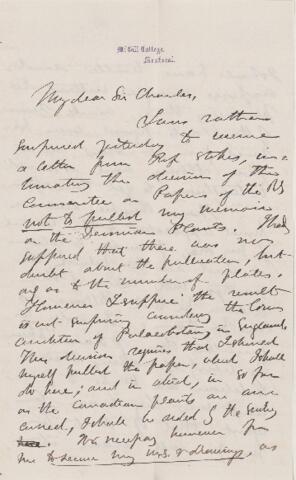 McGill College,
Montreal.
My dear Sir Charles,
I was rather
surprised yesterday to receive
a letter from Prof Stokes, in-
timating the decision of the
Committee on Papers of the RS
not to publish my memoir
on the Devonian Plants. I had
supposed that there was no
doubt about the publication, but
only as to the number of plates.
However I suppose the result
is not surprising considering the Con-
dition of Palaeobotany in England.
This decision requires that I should
myself publish the paper, which I shall
do here; and in which, in so far
as the Canadian plants are con-
cerned, I shall be aided by the Survey
here. It is necessary however for
me to secure my M.S. & drawings, as